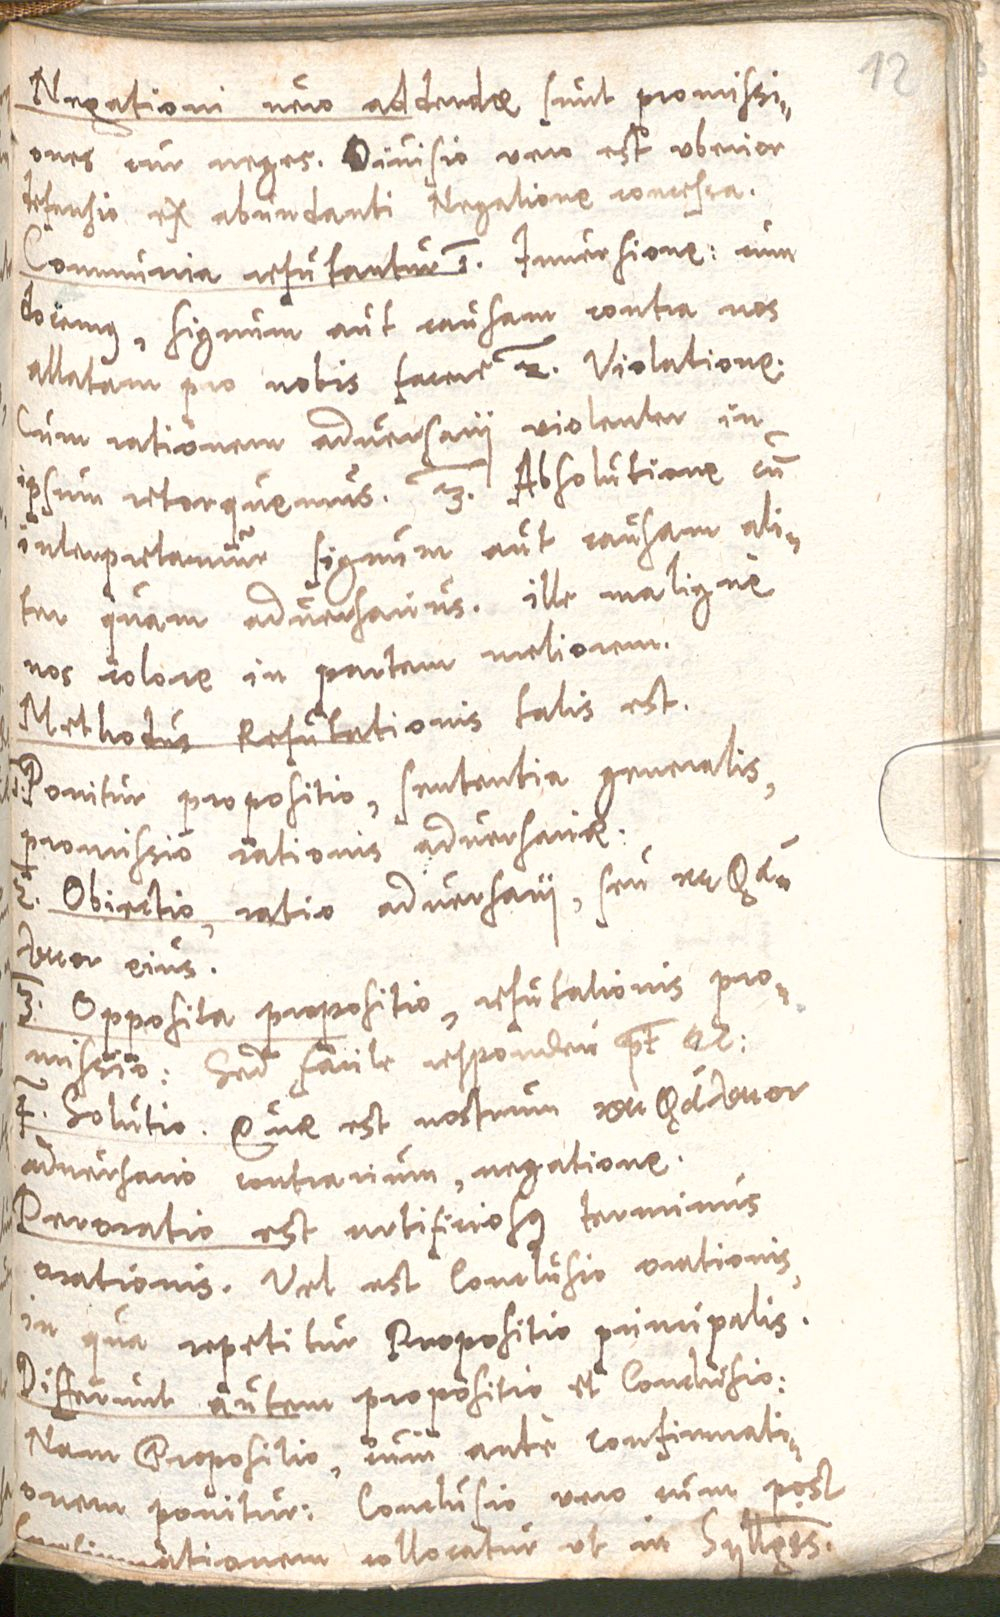 12
Negationi vero addendæ sunt promissi„
ones cur neges. Divisio vero est vberior
defensio ex abundanti Negatione concessa.
Communia refutantur 1. Inversione: cum
docemus, signum aut causam contra nos
allatam pro nobis facere 2. Violatione:
Cum rationem adversarij violenter in
ipsum retorquemus. 3. Absolutione cū
interpretamur signum aut causam ali„
ter quam adversarius. ille maligne
nos colore in partem meliorem.
Methodus Refutationis talis est.
1. Ponitur propositio, sententia generalis,
promissio rationis adversariæ.
2. Obiectio, ratio adversarij, seu
eius.
3. Opposita propositio, refutationis pro„
missio: Sed facile responderi
4. Solutio. Quæ est nostrum
adversario contrarium, negatione.
Peroratio est artificiosus terminus
orationis. Vel est Conclusio orationis,
in qua repetitur Propositio principalis.
Differunt autem propositio et Conclusio:
Nam Propositio, cum ante confirmati„
onem ponitur: Conclusio vero cum post
Confirmationem collocatur ut in